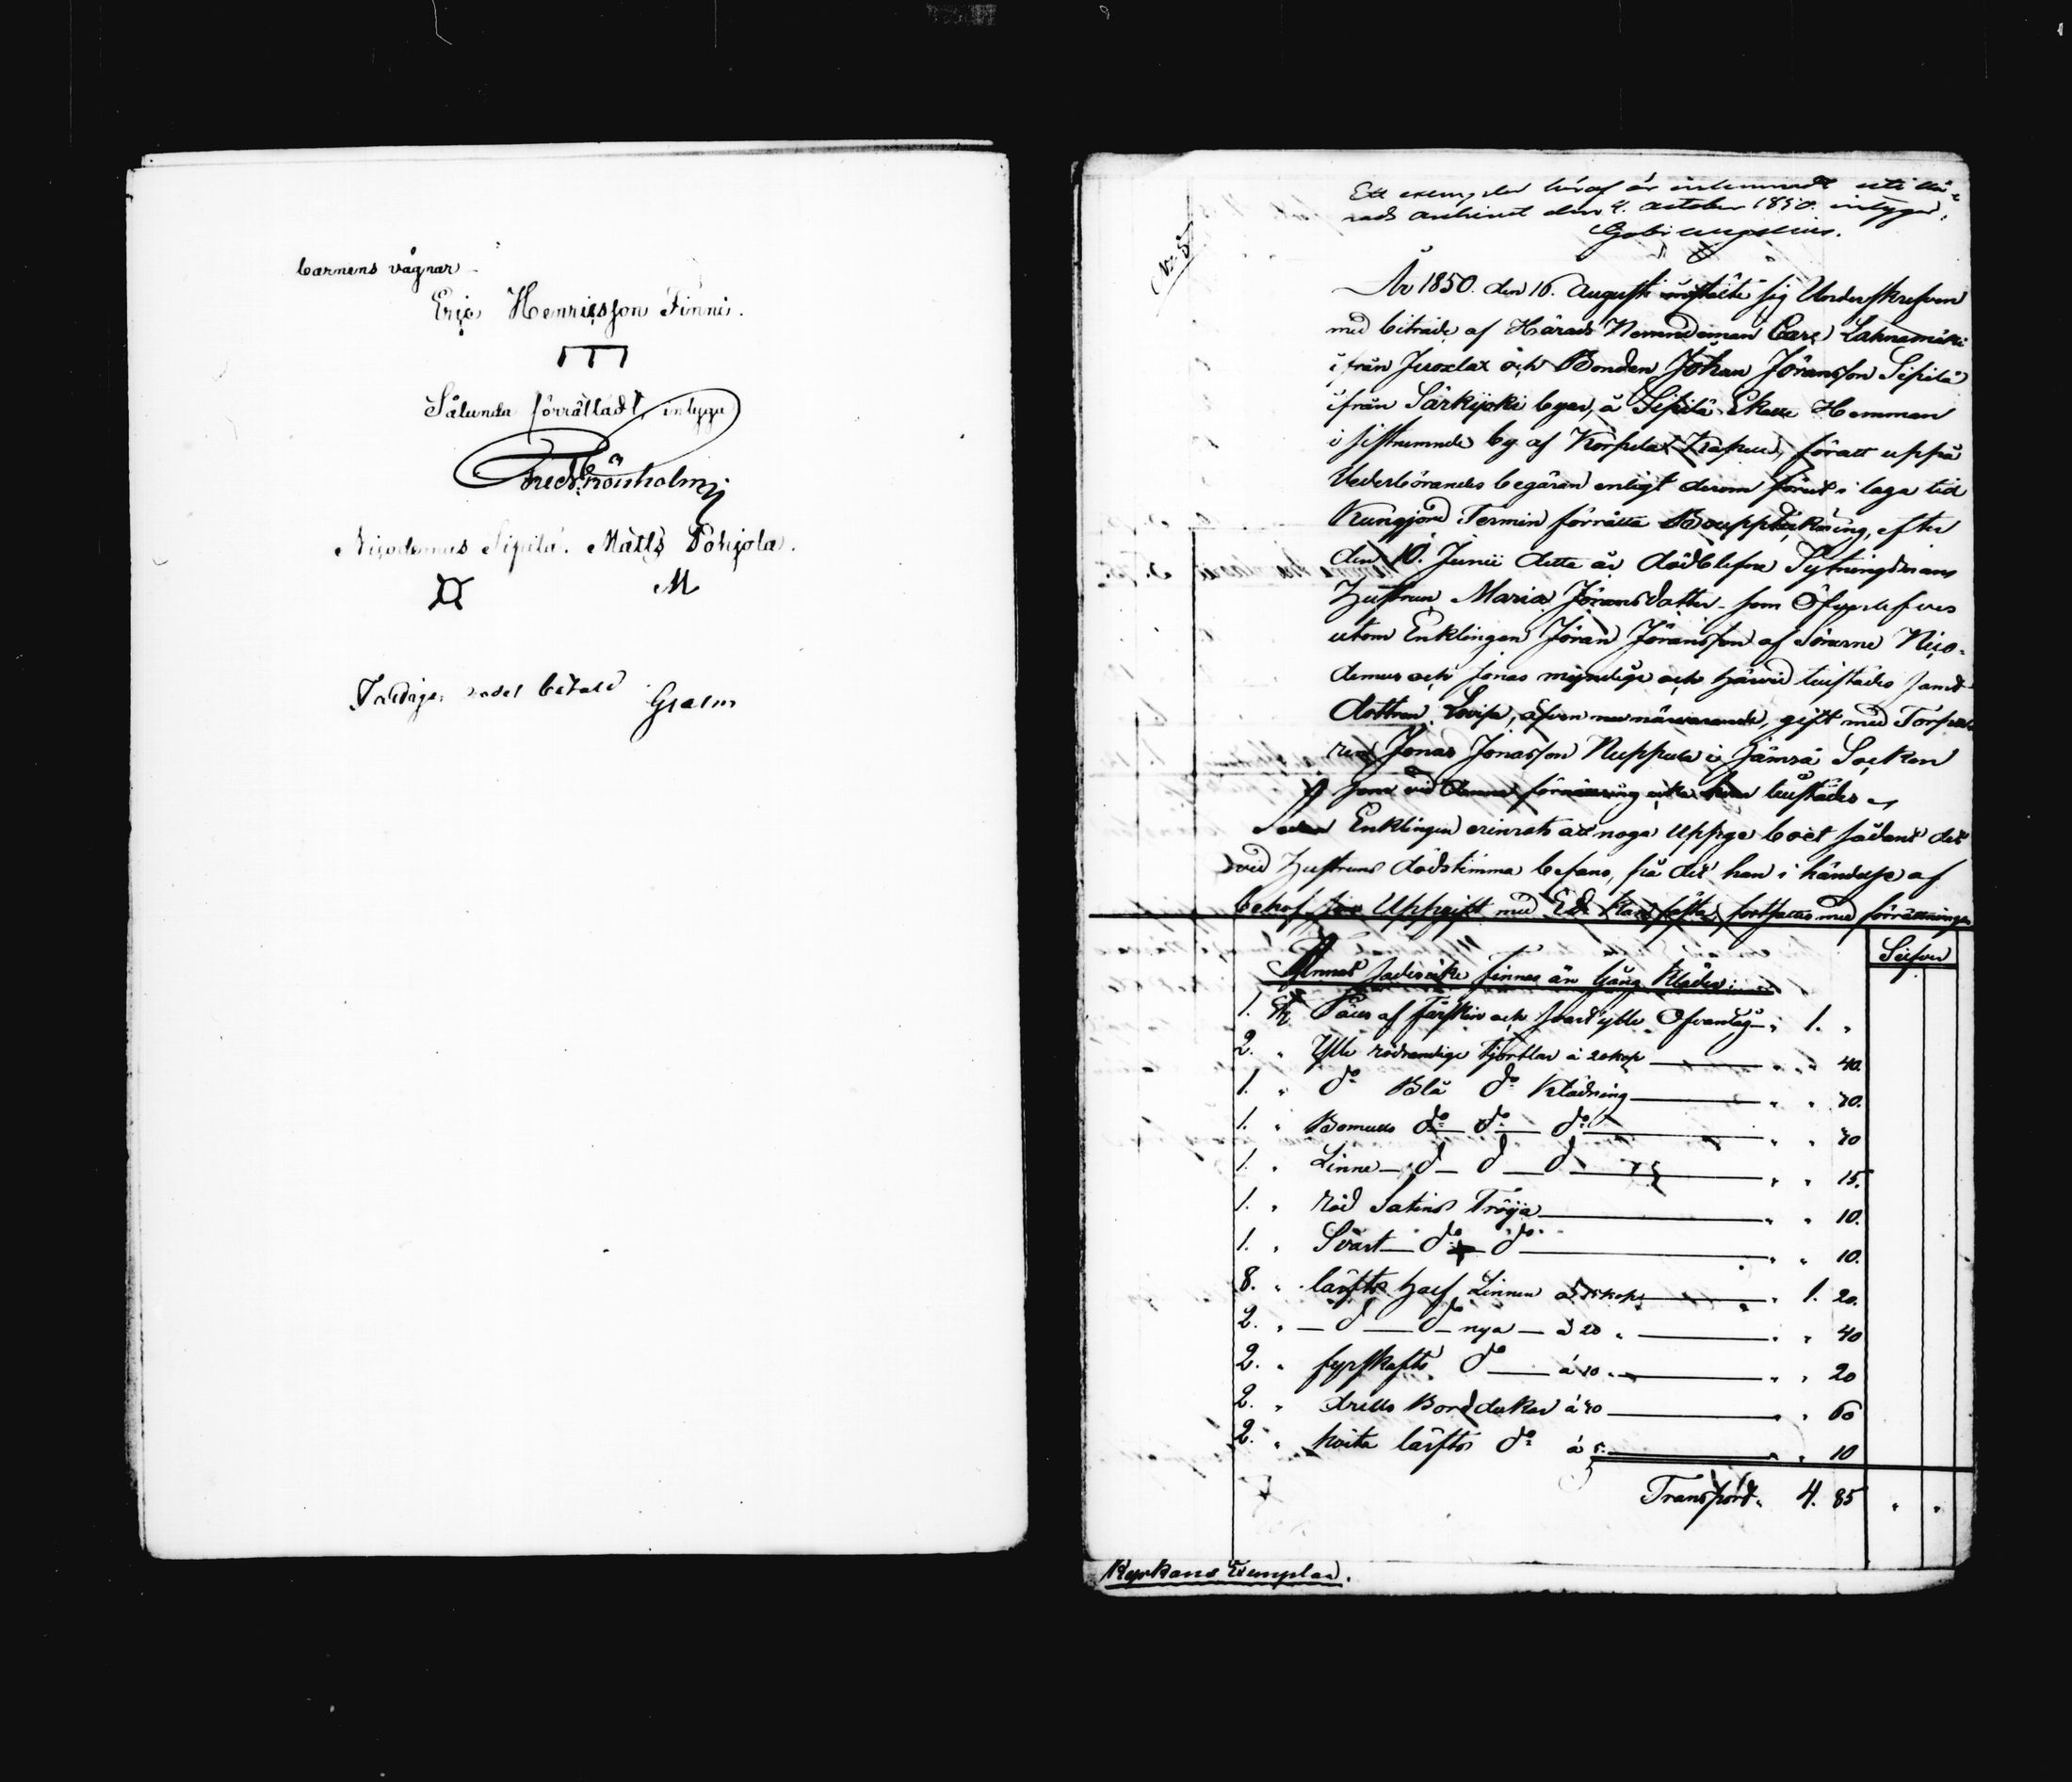 barnens vägnar
Eric Henricsson Finni.
Sålunda förrättadt, intyga
Fredr. Grönholm
Nicodemus Sipilä. Matts Pohjola.
M
betald
Ett exemplar häraf är inlemnadt uti Hä-
rads archivet den 4. October 1850. intygar,
No. 5
År 1850. den 16. Augusti instälte sig Underskrefven
med biträde af Härads Nemndeman Carl Lahnamäki
ifrån Juoxlax och Bonden Johan Jöransson Sipilä
ifrån Särkijoki byar, å Sipilä Skatte Hemman
i sistnemnde by af Korpela Kapell, föratt uppå
Vederbörandes begäran enligt derom förut i laga tid
Kungjord Termin förrätta Boupptäckning, efter
den 10. Junii detta år dödblefne Sytningsmans
Hustrun Maria Jöransdotter som Öfverlefves
utom Enklingen Jöran Jöransson af Sönerne Nico-
demus och Jonas myndige och härvid tillstädes samt
dottren Lovisa, äfven nu närvarande, gift med Torpa-
ren Jonas Jonasson Nuppula i Jämsä Socken
som vid denna förrättning icke tillstädes
Sedan Enklingen erinrats att noga uppge boet sådant det
vid Hustruns dödstimma befans, på det han i händelse af
behof sin Uppgift med Ed fästa, fortsattes med förrättningen
Silfver
finnes än Gång Kläder:
1. st Päls af fårskin och svart ylle Öfverdrag 1. "
2. " Ylle rödrandige kjortlar à 20 kop " " 40.
1. " do Blå do Klädning " " 70.
1. " Bomulls do do do " " 70
1. " Linne d d d " " 15.
1. " röd Satins Tröija " " 10.
1. " Svart do do " " 10.
8. " lärfts half Linnen à 15 kop " 1. 20.
2. " d do nya à 20 " " " 40
2. " fyrskafts do à 10 " " " 20
2. " drells Bord dukar à 30 " " 60
2. " hvita lärfts do à 5. " " 10
Transport. 4. 85 " "
Kyrkans Exemplar.